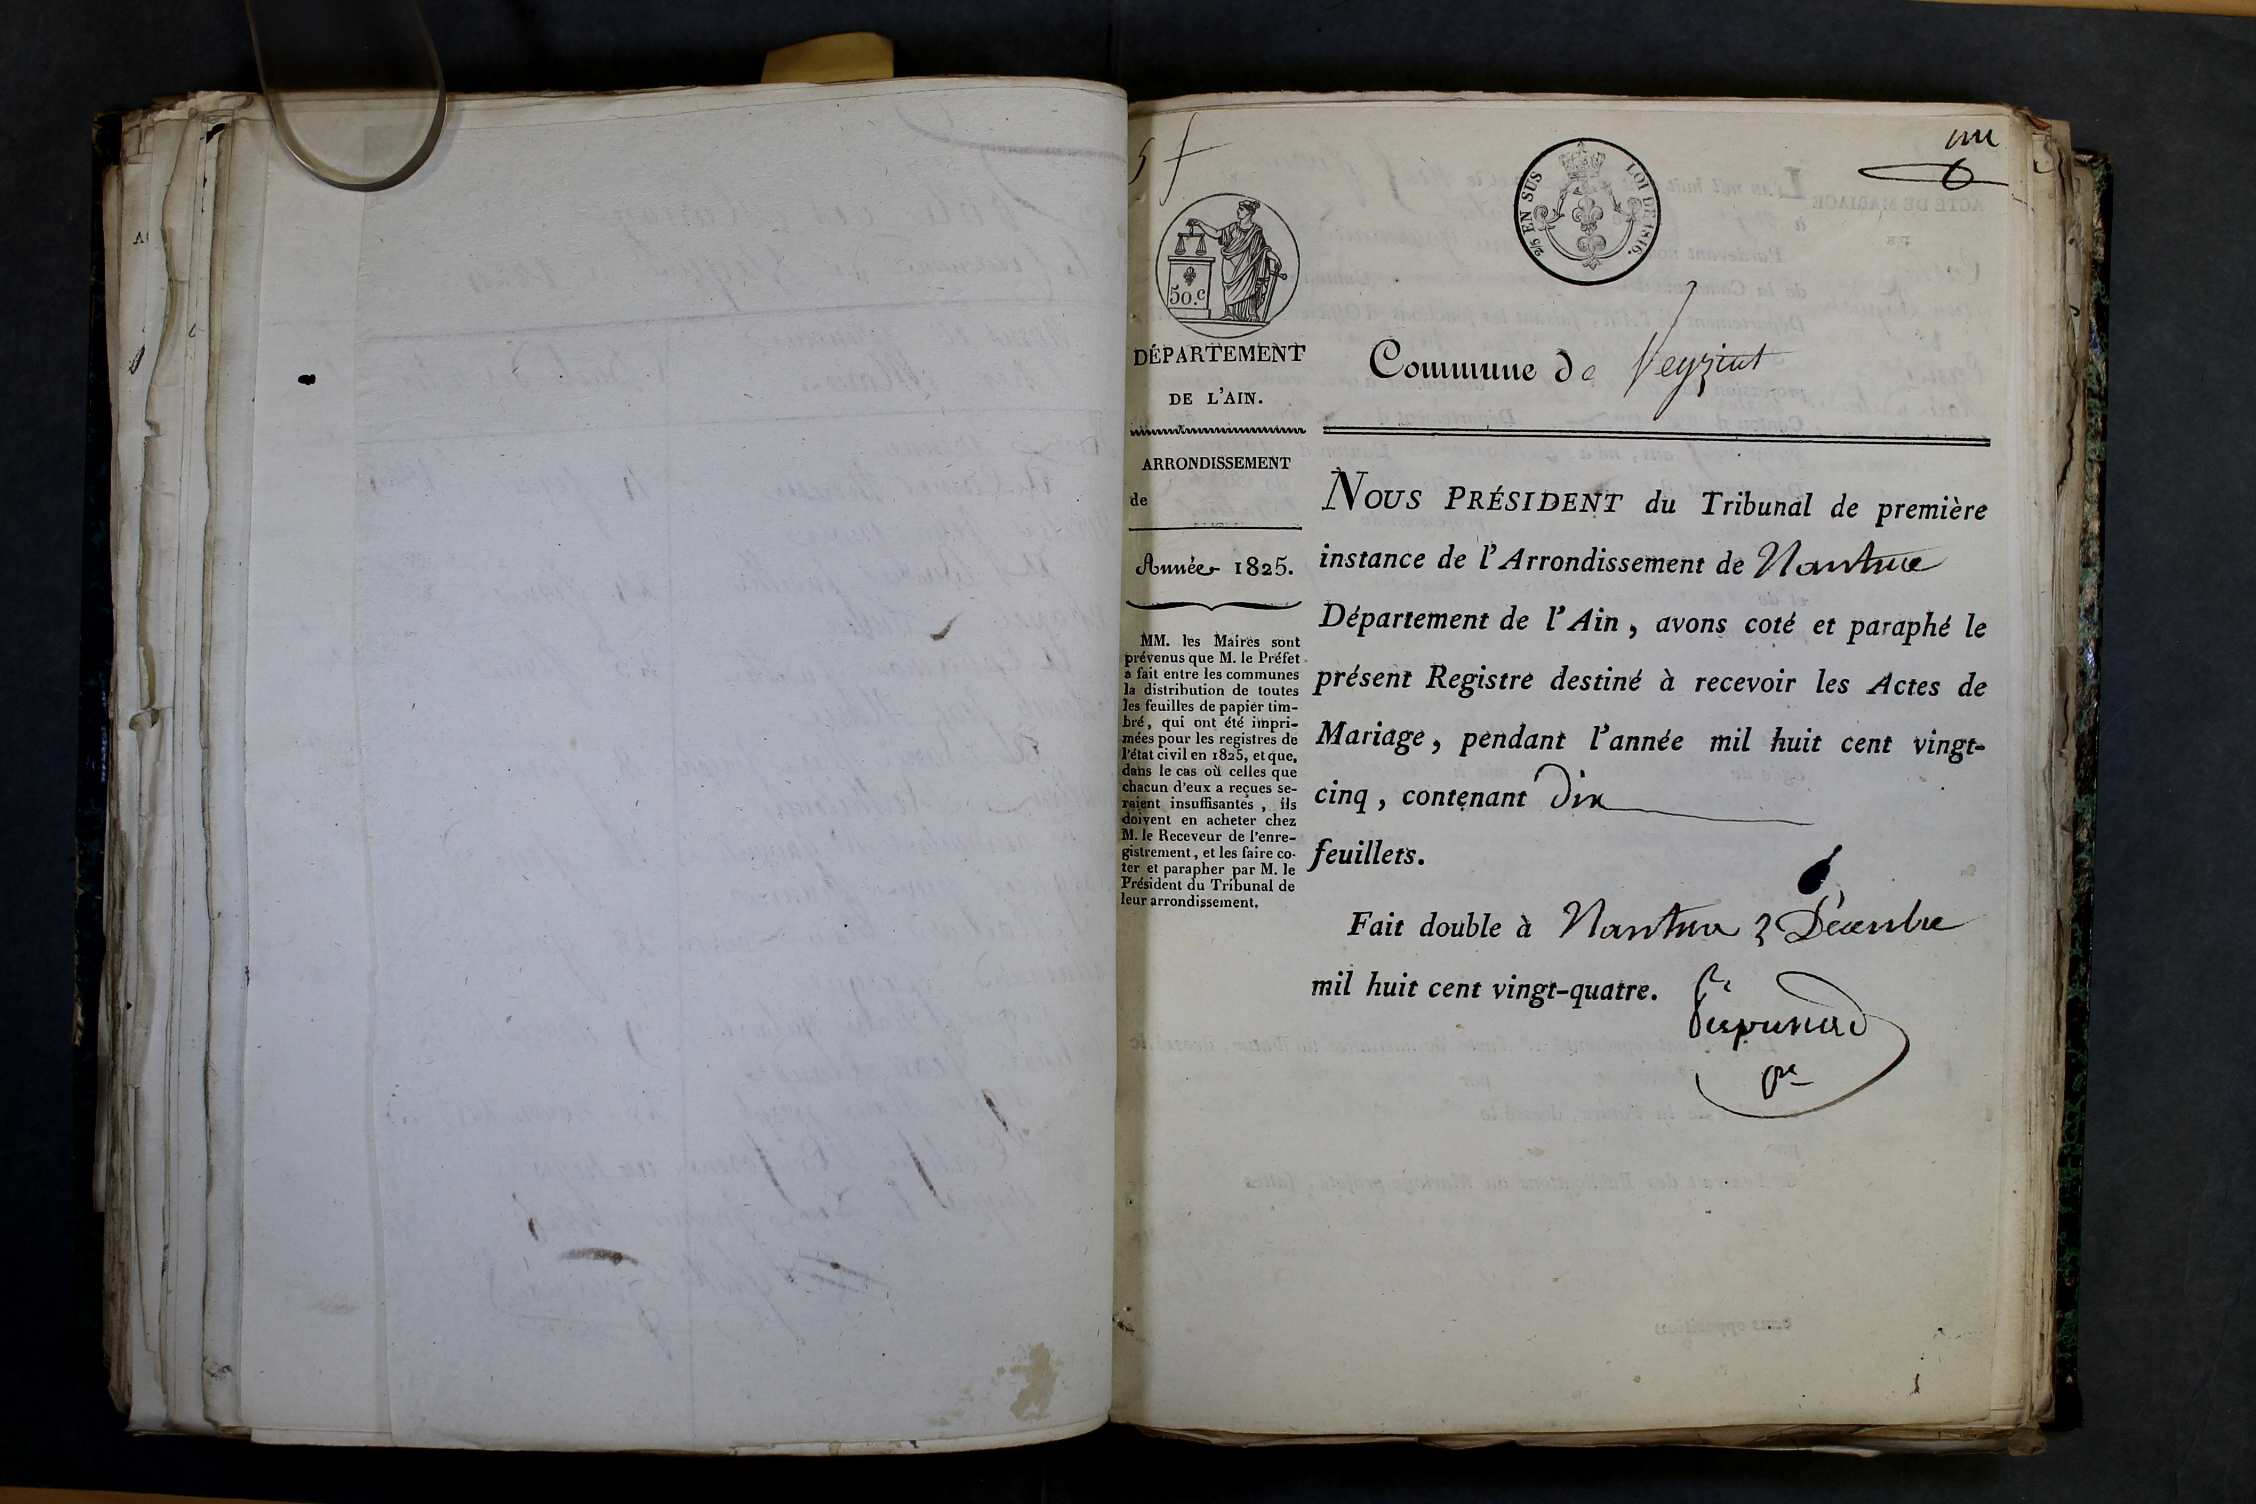 un
2/5 EN SUS LOI DE 1816.
50.c
DÉPARTEMENT
DE L'AIN.
ARRONDISSEMENT
de
Année 1825.
MM. les Maires sont
prévenus que M. le Préfet
a fait entre les communes
la distribution de toutes
les feuilles de papier tim-
bré, qui ont été impri-
mées pour les registres de
l'état civil en 1825, et que,
dans le cas où celles que
chacun d'eux a reçues se-
raient insuffisantes, ils
doivent en acheter chez
M. le Receveur de l'enre-
gistrement, et les faire co-
ter et parapher par M. le
Président du Tribunal de
leur arrondissement.
Commune de Veyziat
NOUS PRÉSIDENT du Tribunal de première
instance de l'Arrondissement de Nantua
Département de l'Ain, avons coté et paraphé le
présent Registre destiné à recevoir les Actes de
Mariage, pendant l'année mil huit cent vingt-
cinq, contenant dix
feuillets.
Fait double à Nantua 2 Décembre
mil huit cent vingt-quatre.